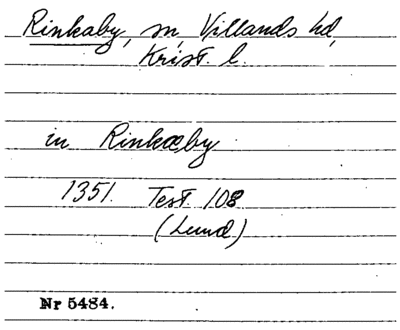 Rinkaby, sn, Villands hd,
Krist. l.
in Rinkæby
1351. Test. 108
(Lund)
Nr 5484.